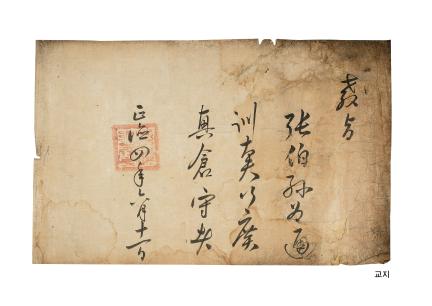 教旨
張伯孫為通
訓大夫行廣
興倉守者
正德四年六月十一日
교지